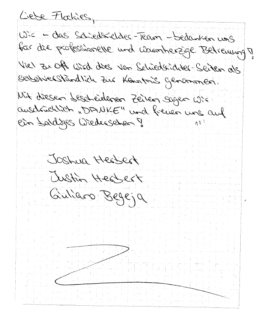 Liebe Flockies,
Wir - das Schiedsrichter-Team - bedanken uns
für die professionelle und warmherzige Betreuung!
Viel zu oft wird dies von Schiedsrichter-Seiten als
selbstverständlich zur Kenntnis genommen.
Mit diesen bescheidenen Zeilen sagen wir
ausdrücklich „DANKE" und freuen uns auf
ein baldiges Wiedersehen!
Joshua Herbert
Justin Herbert
Giuliano Begeja